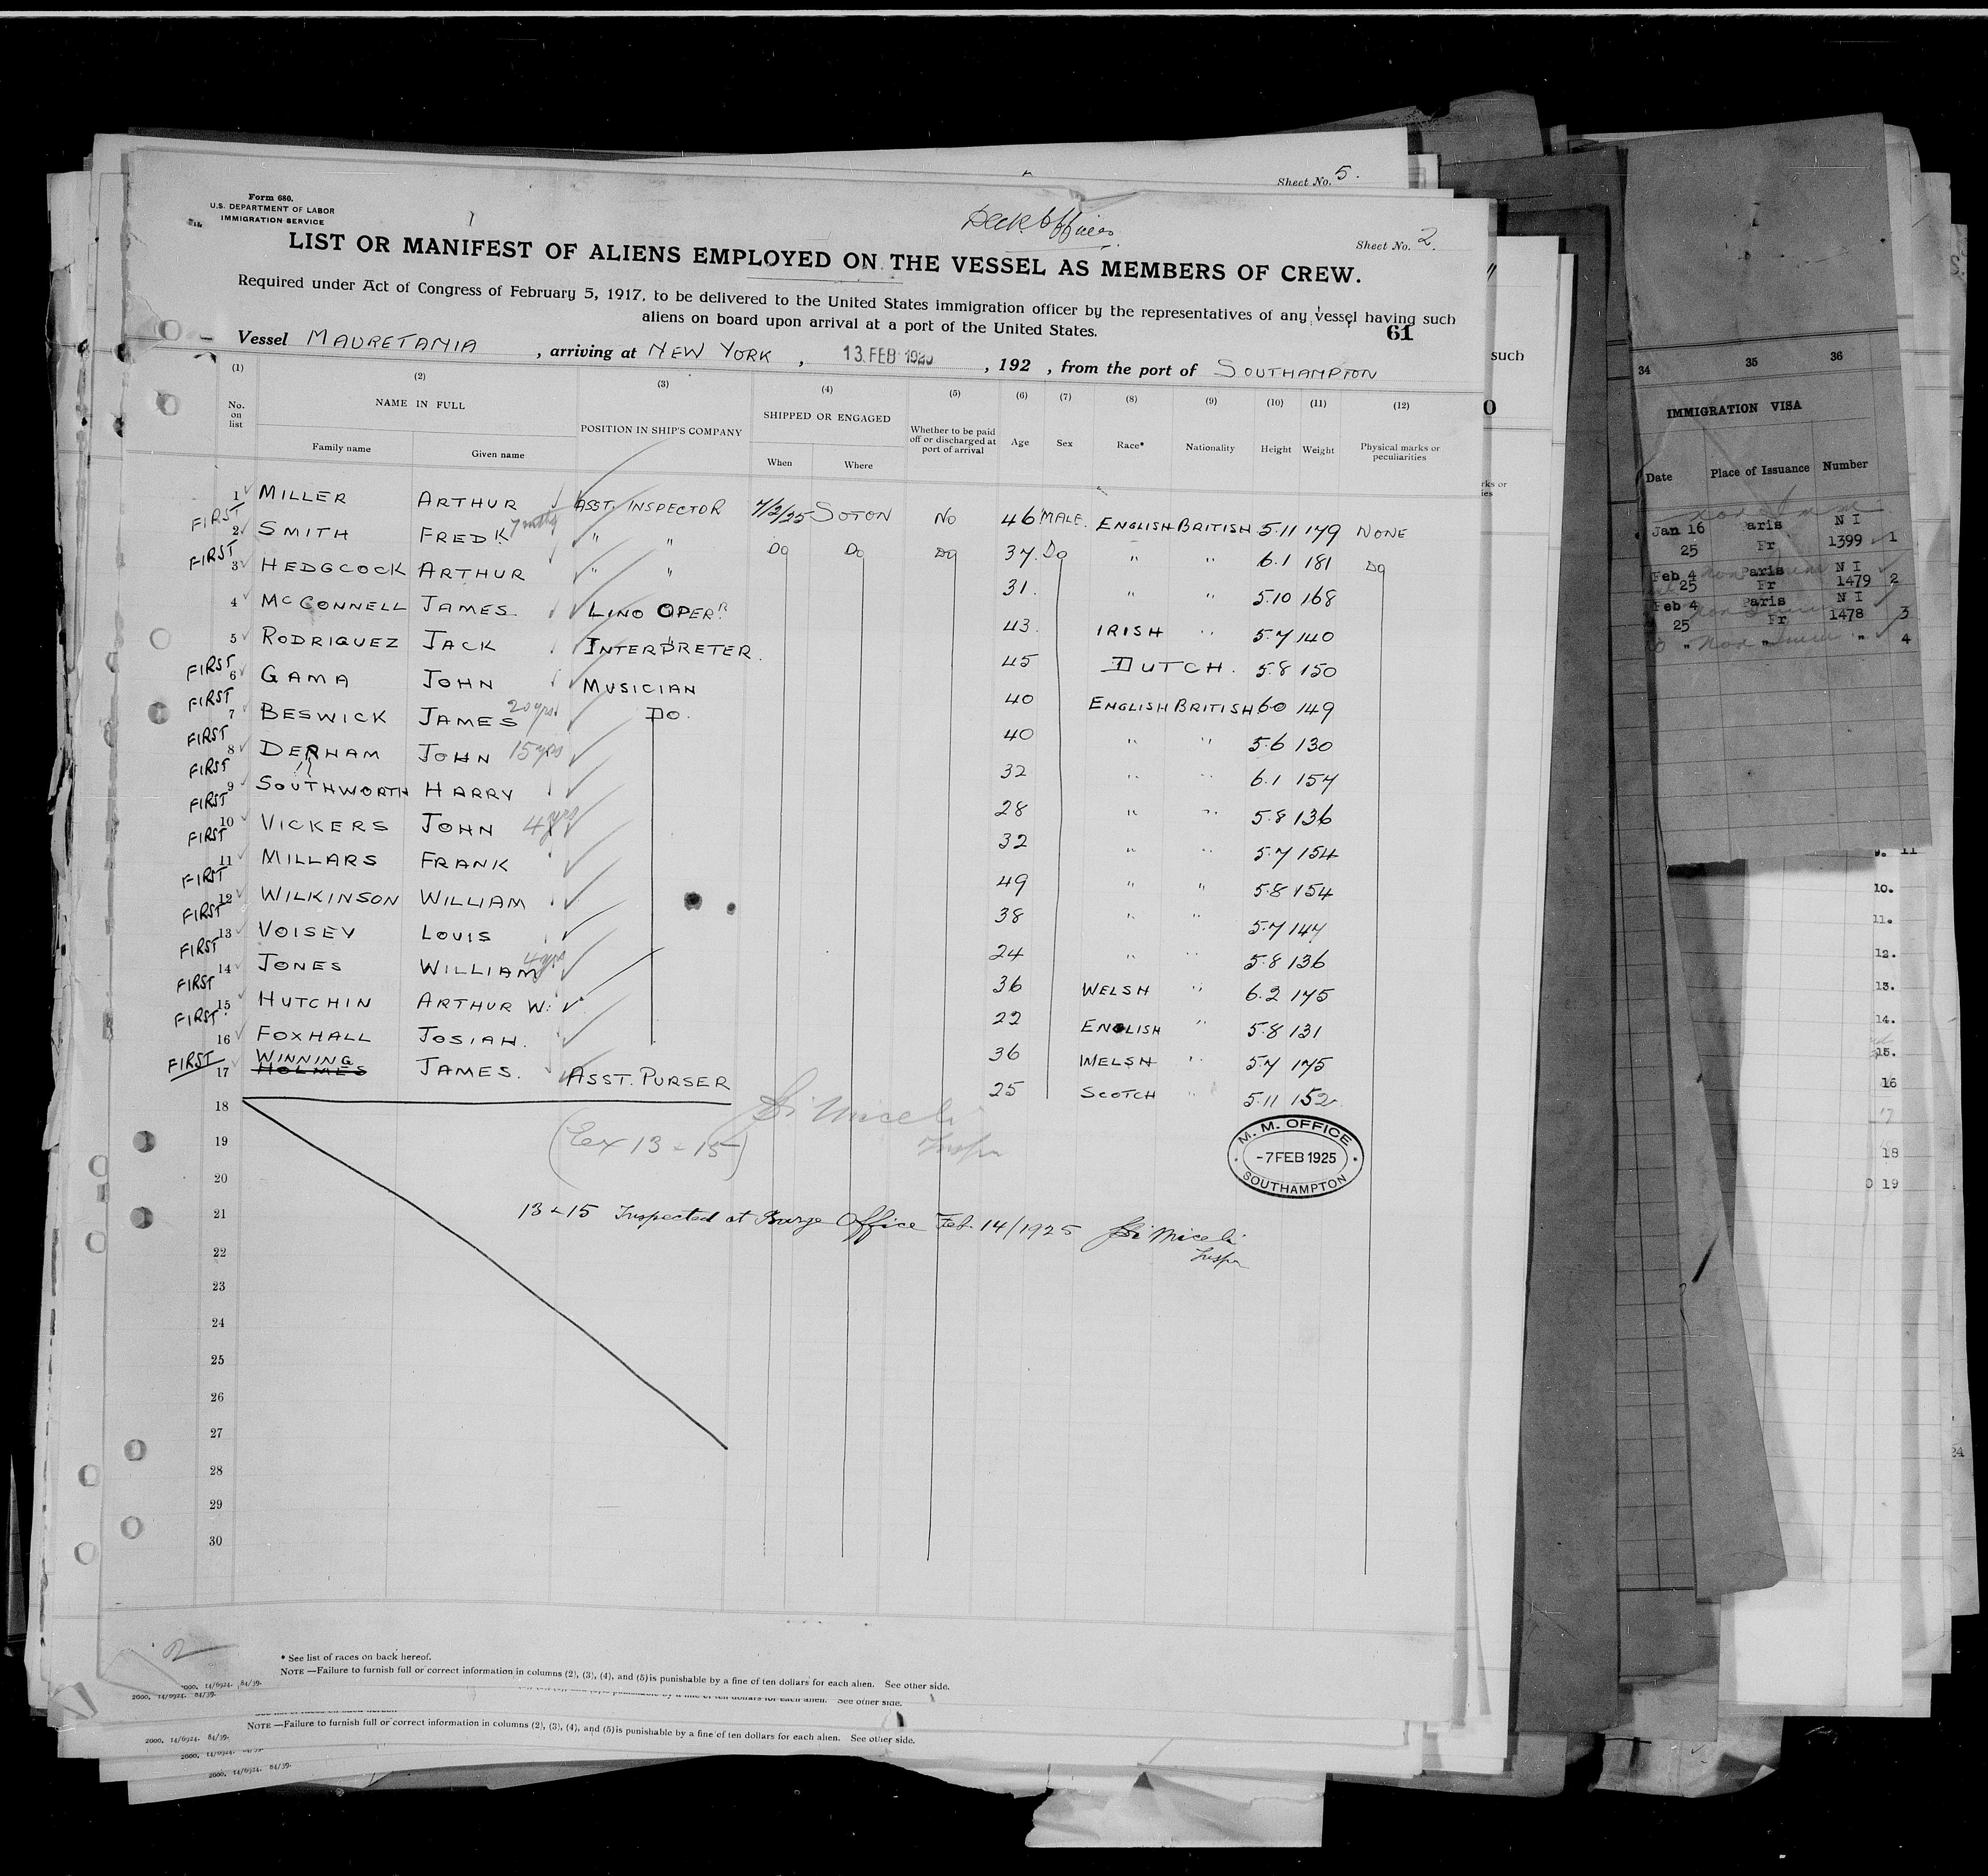 Sheet No. 5.
Form 680.
U.S. DEPARTMENT OF LABOR
IMMIGRATION SERVICE
Deck Officers
Sheet No. 2.
LIST OR MANIFEST OF ALIENS EMPLOYED ON THE VESSEL AS MEMBERS OF CREW.
Required under Act of Congress of February 5, 1917, to be delivered to the United States immigration officer by the representatives of any vessel having such
aliens on board upon arrival at a port of the United States.
61
Vessel MAURETANIA , arriving at NEW YORK , 13 FEB 1925 , 192 , from the port of SOUTHAMPTON
(1) (2) (3) (4) (5) (6) (7) (8) (9) (10) (11) (12)
No. on list NAME IN FULL POSITION IN SHIP'S COMPANY SHIPPED OR ENGAGED Whether to be paid off or discharged at port of arrival Age Sex Race* Nationality Height Weight Physical marks or peculiarities
Family name Given name When Where
1 MILLER ARTHUR ASST. INSPECTOR 7/2/25 SOTON NO 46 MALE. ENGLISH BRITISH 5.11 179 NONE
FIRST 2 SMITH FREDK. 7 mths " " DO DO DO 37. DO " " 6.1 181 DO
FIRST 3 HEDGCOCK ARTHUR " " 31. " " 5.10 168
4 McCONNELL JAMES LINO OPERR. 43. IRISH " 5.7 140
5 RODRIGUEZ JACK INTERPRETER. 45 DUTCH. 5.8 150
FIRST 6 GAMA JOHN MUSICIAN 40 ENGLISH BRITISH 6.0 149
FIRST 7 BESWICK JAMES 20 yrs DO. 40 " " 5.6 130
FIRST 8 DERHAM JOHN 15 yrs 32 " " 6.1 157
FIRST 9 SOUTHWORTH HARRY 28 " " 5.8 136
FIRST 10 VICKERS JOHN 4 yrs 32 " " 5.7 154
FIRST 11 MILLARS FRANK 49 " " 5.8 154
FIRST 12 WILKINSON WILLIAM 38 " " 5.7 147
FIRST 13 VOISEY LOUIS 24 " " 5.8 136
FIRST 14 JONES WILLIAM 4 yrs 36 WELSH " 6.2 175
FIRST 15 HUTCHIN ARTHUR W. 22 ENGLISH " 5.8 131
FIRST 16 FOXHALL JOSIAH. 36 WELSH " 5.7 175
FIRST 17 WINNING HOLMES JAMES. ASST. PURSER 25 SCOTCH " 5.11 152
18
19
20
21
22
23
24
25
26
27
28
29
30
(Ex 13 - 15) Di Miceli
Inspr
M. M. OFFICE
-7 FEB 1925
SOUTHAMPTON
13 - 15 Inspected at Barge Office Feb. 14/1925 Di Miceli
Inspr
2
* See list of races on back hereof.
NOTE —Failure to furnish full or correct information in columns (2), (3), (4), and (5) is punishable by a fine of ten dollars for each alien. See other side.
2000. 14/6924. 84/39.
NOTE —Failure to furnish full or correct information in columns (2), (3), (4), and (5) is punishable by a fine of ten dollars for each alien. See other side.
2000. 14/6924. 84/39.
2000. 14/6924. 84/39.
such
34 35 36
IMMIGRATION VISA
Date Place of Issuance Number
Jan 16 aris N I
25 Fr 1399 1
Feb 4 Paris N I
25 Fr 1479 2
Feb 4 Paris N I
25 Fr 1478 3
" " " 4
10.
11.
12.
13.
14.
15.
16
17
18
19
24